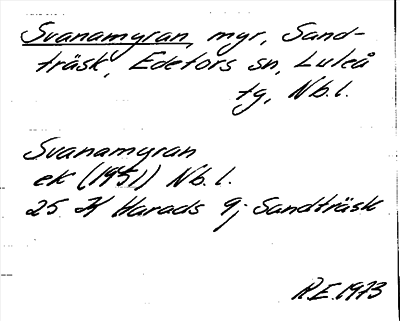 Svanamyran, myr, Sand-
träsk, Edefors sn, Luleå
tg, Nb.l.
Svanamyran
ek (1951) Nb.l.
25 K Harads 9j Sandträsk
R.E. 1973